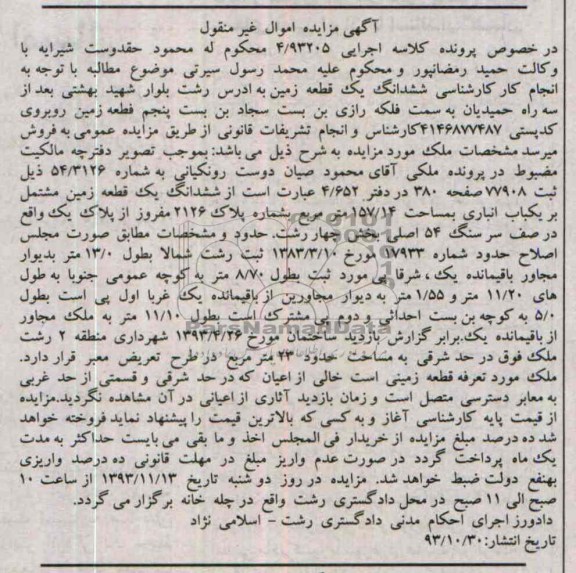 آگهی مزایده اموال غیر منقول
در خصوص پرونده کلاسه اجرایی ۴/۹۳۲۰۵ محکوم له محمود حقدوست شیرایه با
وکالت حمید رمضانپور و محکوم علیه محمد رسول سیرتی موضوع مطالبه با توجه به
انجام کار کارشناسی ششدانگ یک قطعه زمین به ادرس رشت بلوار شهید بهشتی بعد از
سه راه حمیدیان به سمت فلکه رازی بن بست سجاد بن بست پنجم قطعه زمین روبروی
کدپستی ۴۱۴۶۸۷۷۴۸۷کارشناس و انجام تشریفات قانونی از طریق مزایده عمومی به فروش
میرسد مشخصات ملک مورد مزایده به شرح ذیل می باشد: بموجب تصویر دفترچه مالکیت
مضبوط در پرونده ملکی آقای محمود صیان دوست رونکیانی به شماره ۵۴/۳۱۲۶ ذیل
ثبت ۷۷۹۰۸ صفحه ۳۸۰ در دفتر ۴/۶۵۲ عبارت است از ششدانگ یک قطعه زمین مشتمل
بر یکباب انباری بمساحت ۱۵۷/۱۴ متر مربع بشماره پلاک ۲۱۲۶ مفروز از پلاک یک واقع
در صف سر سنگ ۵۴ اصلی بخش چهار رشت. حدود و مشخصات مطابق صورت مجلس
اصلاح حدود شماره ۱۷۹۳۳ مورخ ۱۳۸۳/۳/۱۰ ثبت رشت شمالا بطول ۱۳/۰ متر بدیوار
مجاور باقیمانده یک ، شرقا پی مورد ثبت بطول ۸/۷۰ متر به کوچه عمومی جنوبا به طول
های ۱۱/۲۰ متر و ۱/۵۵ متر به دیوار مجاورین از باقیمانده یک غربا اول پی است بطول
۵/۰ به کوچه بن بست احداثی و دوم پی مشترک است بطول ۱۱/۱۰ متر به ملک مجاور
از باقیمانده یک.برابر گزارش بازدید ساختمان مورخ ۱۳۹۳/۴/۲۶ شهرداری منطقه ۲ رشت
ملک فوق در حد شرقی به مساحت حدود ۲۳ متر مربع در طرح تعریض معبر قرار دارد.
ملک مورد تعرفه قطعه زمینی است خالی از اعیان که در حد شرقی و قسمتی از حد غربی
به معابر دسترسی متصل است و زمان بازدید آثاری از اعیانی در آن مشاهده نگردید.مزایده
از قیمت پایه کارشناسی آغاز و به کسی که بالاترین قیمت را پیشنهاد نماید فروخته خواهد
شد ده درصد مبلغ مزایده از خریدار فی المجلس اخذ و ما بقی می بایست حداکثر به مدت
یک ماه پرداخت گردد در صورت عدم واریز مبلغ در مهلت قانونی ده درصد واریزی
بهنفع دولت ضبط خواهد شد. مزایده در روز دو شنبه تاریخ ۱۳۹۳/۱۱/۱۳ از ساعت ۱۰
صبح الی ۱۱ صبح در محل دادگستری رشت واقع در چله خانه برگزار می گردد.
دادورز اجرای احکام مدنی دادگستری رشت – اسلامی نژاد
تاریخ انتشار: ۹۳/۱۰/۳۰
ParsNamadData